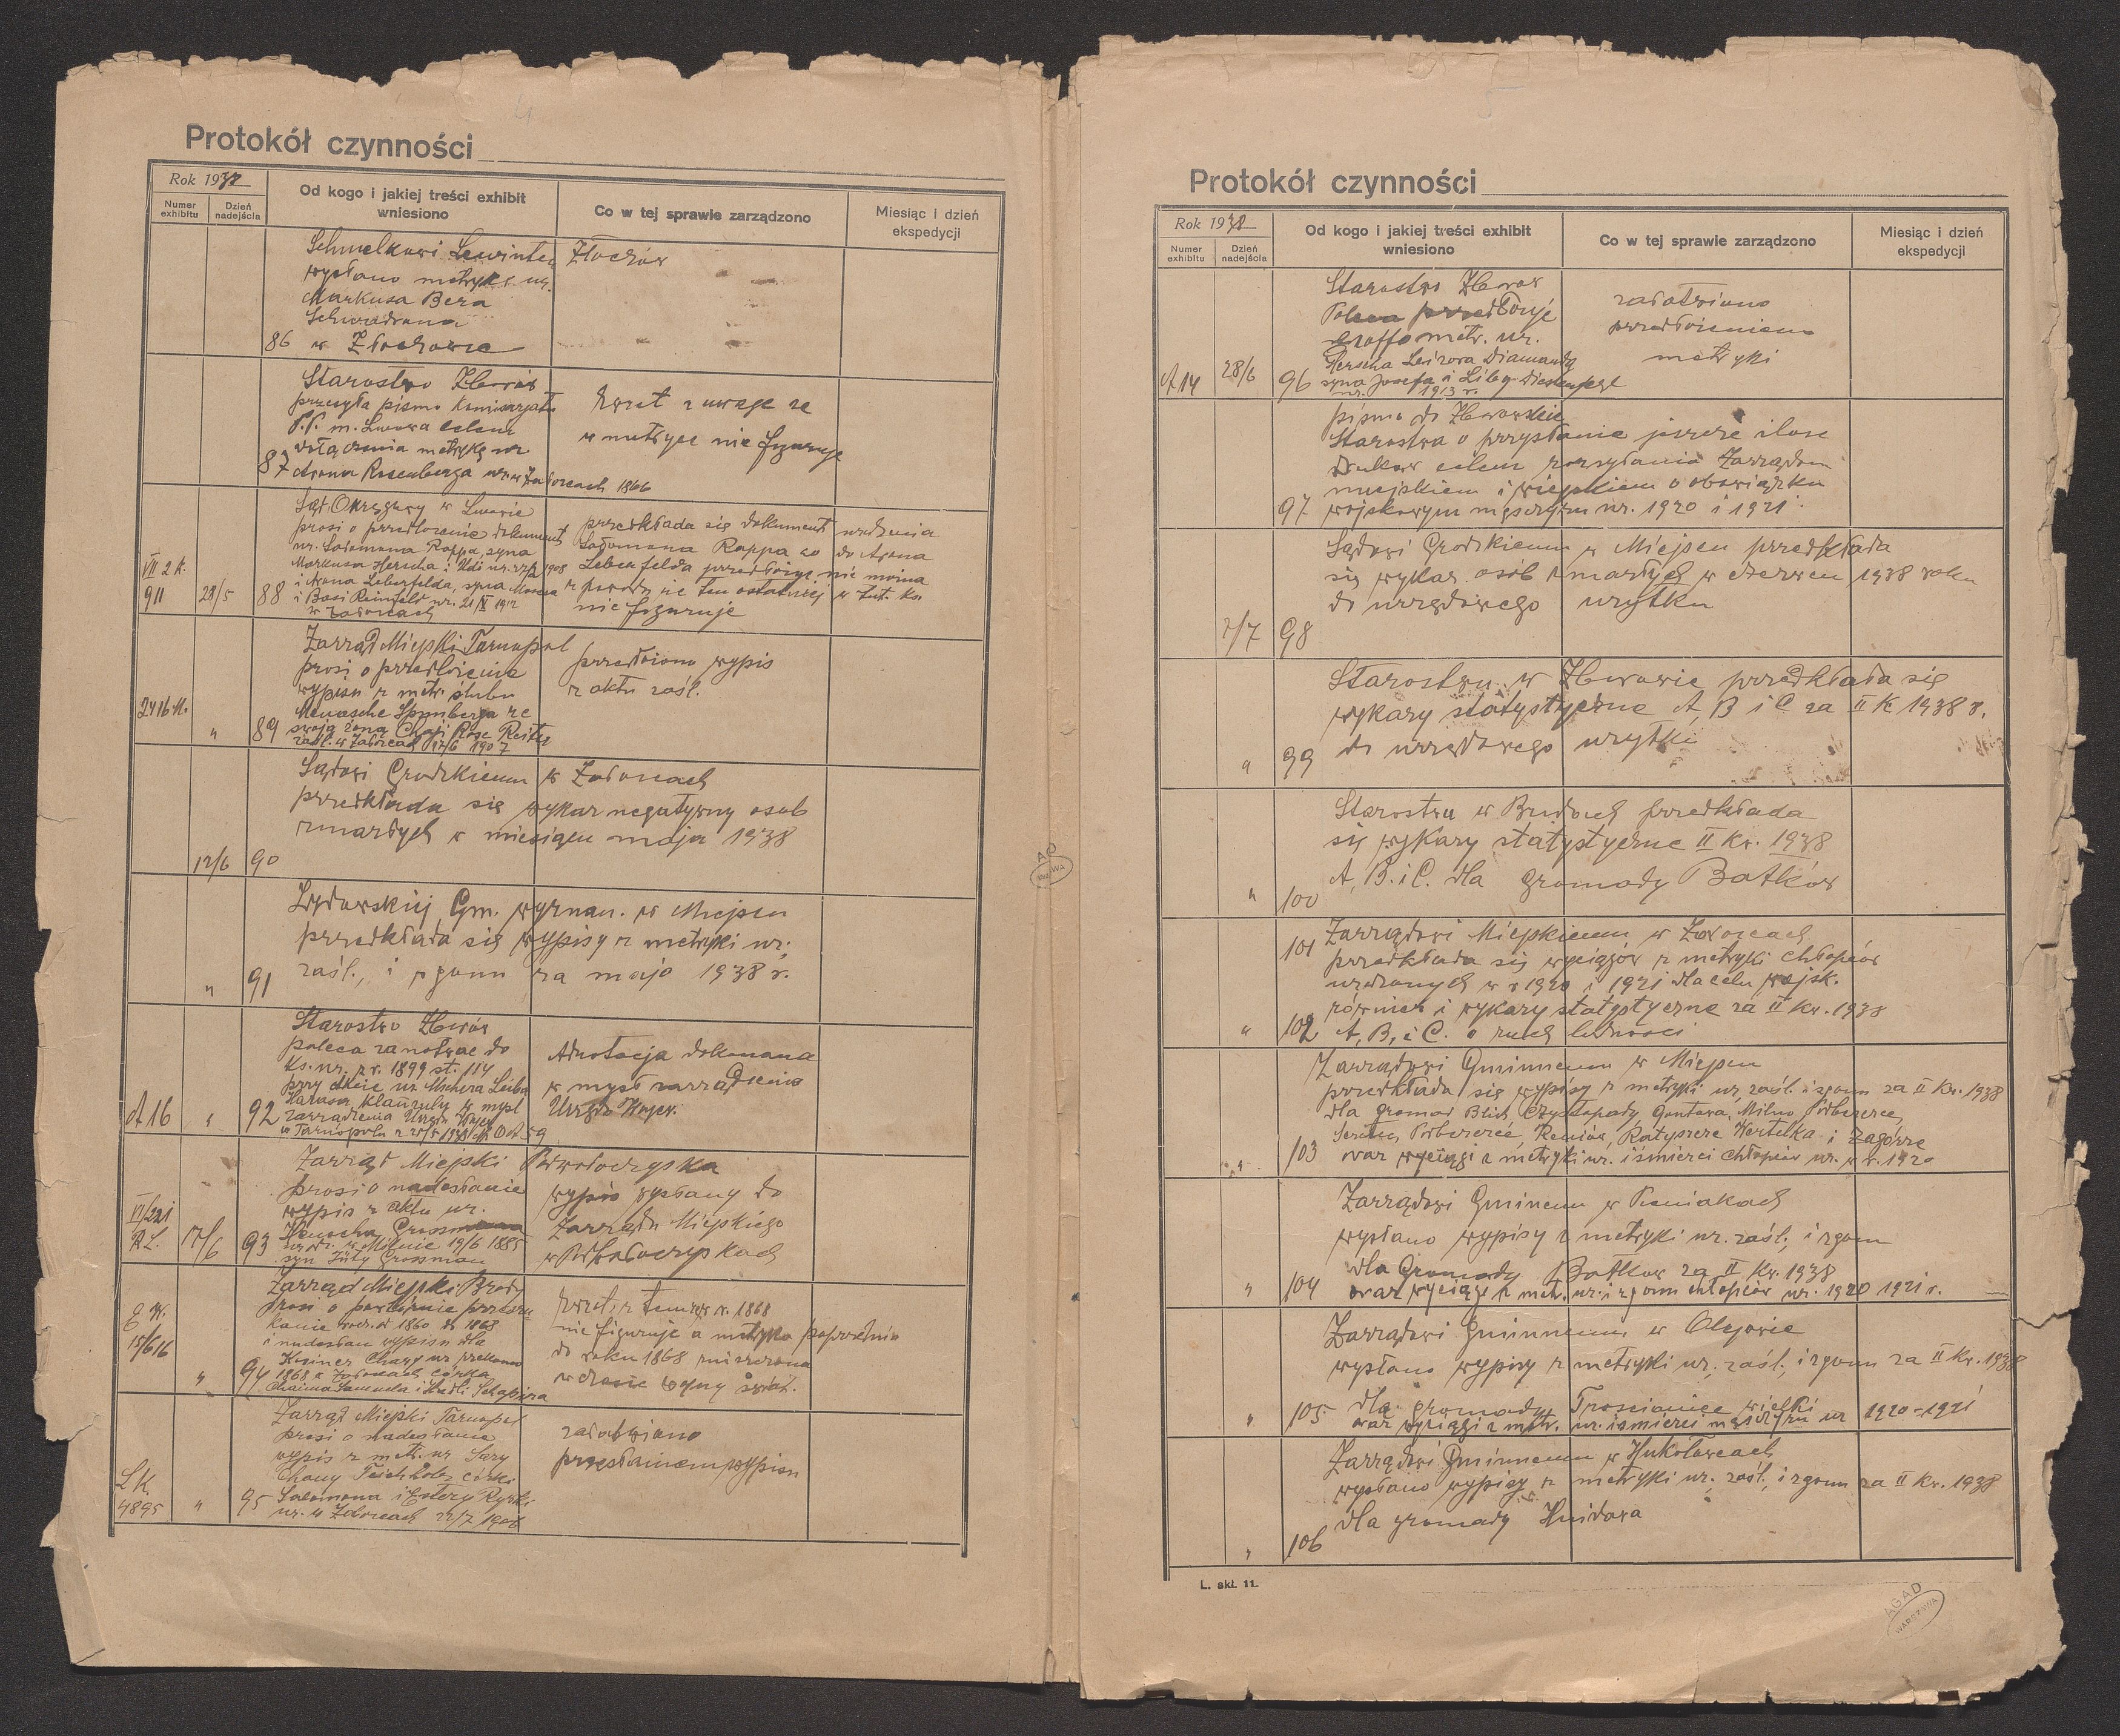 Protokół czynności
Rok 1938
Numer exhibitu
Dzień nadejścia
Od kogo i jakiej treści exhibit wniesiono
Co w tej sprawie zarządzono
Miesiąc i dzień ekspedycji
Schmelkowi
Złoczów
wysłano metrykę ur.
Markusa Bera
86 w Złoczowie
Starostwo Zborów
przesyła pismo Komisarjatu
P.P. m. Lwowa celem
87 Arona Rosenberga ur. w Załoścach 1866
Zwrot z uwagą że
w metryce nie figuruje
Sąd Okręgowy w Lwowie
prosi o przedłożenie dokument
ur. Salomona Rappa, syna
Markusa Herscha i
i Arona Leberfelda, syna
i Basi ur. 21/IX 1912
w Załoścach
VII 2 K.
911
28/5
88
przedkłada się dokument urodzenia
Salomona Rappa co do Arona
Leberfelda przedłożyć nie można
z powodu że ten ostatniej w tut. ks.
nie figuruje
Zarząd Miejski Tarnopol
prosi o przedłożenie
wypisu z metr. ślubu
Menasche ze
swoją żoną Chaji Rose Reiter
zaśl. w Załoścach 17/6 1907
2416 M.
"
89
przedłożono wypis
z aktu zaśl.
Sądowi Grodzkiemu w Załoścach
przedkłada się wykaz negatywny osób
zmarłych w miesiącu maja 1938
12/6
90
Żydowskiej Gm. wyznan. w Miejscu
przedkłada się wypisy z metryki ur.,
"
91
zaśl., i zgonu za maj 1938 r.
Starostwo Zborów
poleca zanotwać do
Ks. ur. z r. 1899 st. 114
przy akcie ur. Leiba
klauzulę w myśl
zarządzenia Urzędu Wojew.
w Tarnopolu z
A 16
"
92
Adnotacja dokonana
w myśl zarządzenia
Urzędu Wojew.
Zarząd Miejski Podwołoczyska
prosi o nadesłanie
wypis z aktu ur.
w Milnie 19/6 1885
syn Grossman
VI/221
17/6
93
wypis wysłany do
Zarządu Miejskiego
w Podwołoczyskach
Zarząd Miejski Brody
prosi o powtórnie
kanie 1860 do 1868
i nadesłan wypisu dla
Chany ur.
1868 w Załoścach córka
Chaima Samuela i Hudli Schapira
15/616
"
94
Zwrot, z tem że w r. 1868
nie figuruje a metryka poprzednio
do roku 1868 zniszczona
w czasie wojny świat.
Zarząd Miejski Tarnopol
prosi o nadesłanie
wypis z metr. ur. Sary
Chany Teichholz córki
Salomona i Estery
ur. w Załoścach 22/7 1906
L.K.
4895
"
95
załatwiono
przesłaniem wypisu
Protokół czynności
Rok 1938
Numer exhibitu
Dzień nadejścia
Od kogo i jakiej treści exhibit wniesiono
Co w tej sprawie zarządzono
Miesiąc i dzień ekspedycji
Starostwo Zborów
metr. ur.
Herscha Leizora Diamanda
syna Josefa i
ur. 1913 r.
A 14
28/6
96
załatwiono
przedłożeniem
metryki
pismo do Zborowskie
Starostwa o przysłanie jeszcze ilość
druków celem rozsyłania Zarządom
miejskiem i wiejskiem o obowiązku
97 wojskowym mężczyzn ur. 1920 i 1921.
Sądowi Grodzkiemu w Miejscu przedkłada
się wykaz osób zmarłych w czerwcu 1938 roku
do urzędowego użytku
2/7
98
Starostwu w Zborowie przedkłada się
wykazy statystyczne A, B i C za II K 1938 r.
"
99 do urzędowego użytku
Starostwu w Brodach przedkłada
się wykazy statystyczne II Kw. 1938
A, B. i C. dla gromady Batków
"
100
101 Zarządowi Miejskiemu w Załoścach
przedkłada się wyciągów z metryki chłopców
urodzonych w r 1920 i 1921 dla celu wojsk.
również i wykazy statystyczne za II Kw. 1938
"
102 A, B, i C. o ruch ludności
Zarządowi Gminnemu w Miejscu
przedkłada się wypisy z metryki ur, zaśl. i zgonu za II Kw. 1938
dla gromad Blich, Czystopady, Gontowa, Milno, Podbereźce,
Seretec, Reniów, Ratyszcze Wertełka i Zagórze
"
103 oraz wyciągi z metryki ur. i śmierci chłopców ur. w r. 1920
Zarządowi Gminem w Pieniakach
wysłano wypisy z metryki ur. zaśl., i zgonu
dla Gromady Batków za II Kw. 1938
"
104 oraz wyciągi z metr. ur. i zgonu chłopców ur. 1920 1921 r.
Zarządowi Gminnemu w Olejowie
wysłano wypisy z metryki ur., zaśl., i zgonu za II Kw. 1938
"
105 dla gromady Trościaniec wielki
oraz wyciągi z metr. ur. i śmierci mężczyzn ur 1920-1921
Zarządowi Gminnemu w Hukałowcach
wysłano wypisy z metryki ur., zaśl., i zgonu za II Kw. 1938
dla gromady Hnidawa
"
106
L. skł. 11.
AGAD
WARSZAWA